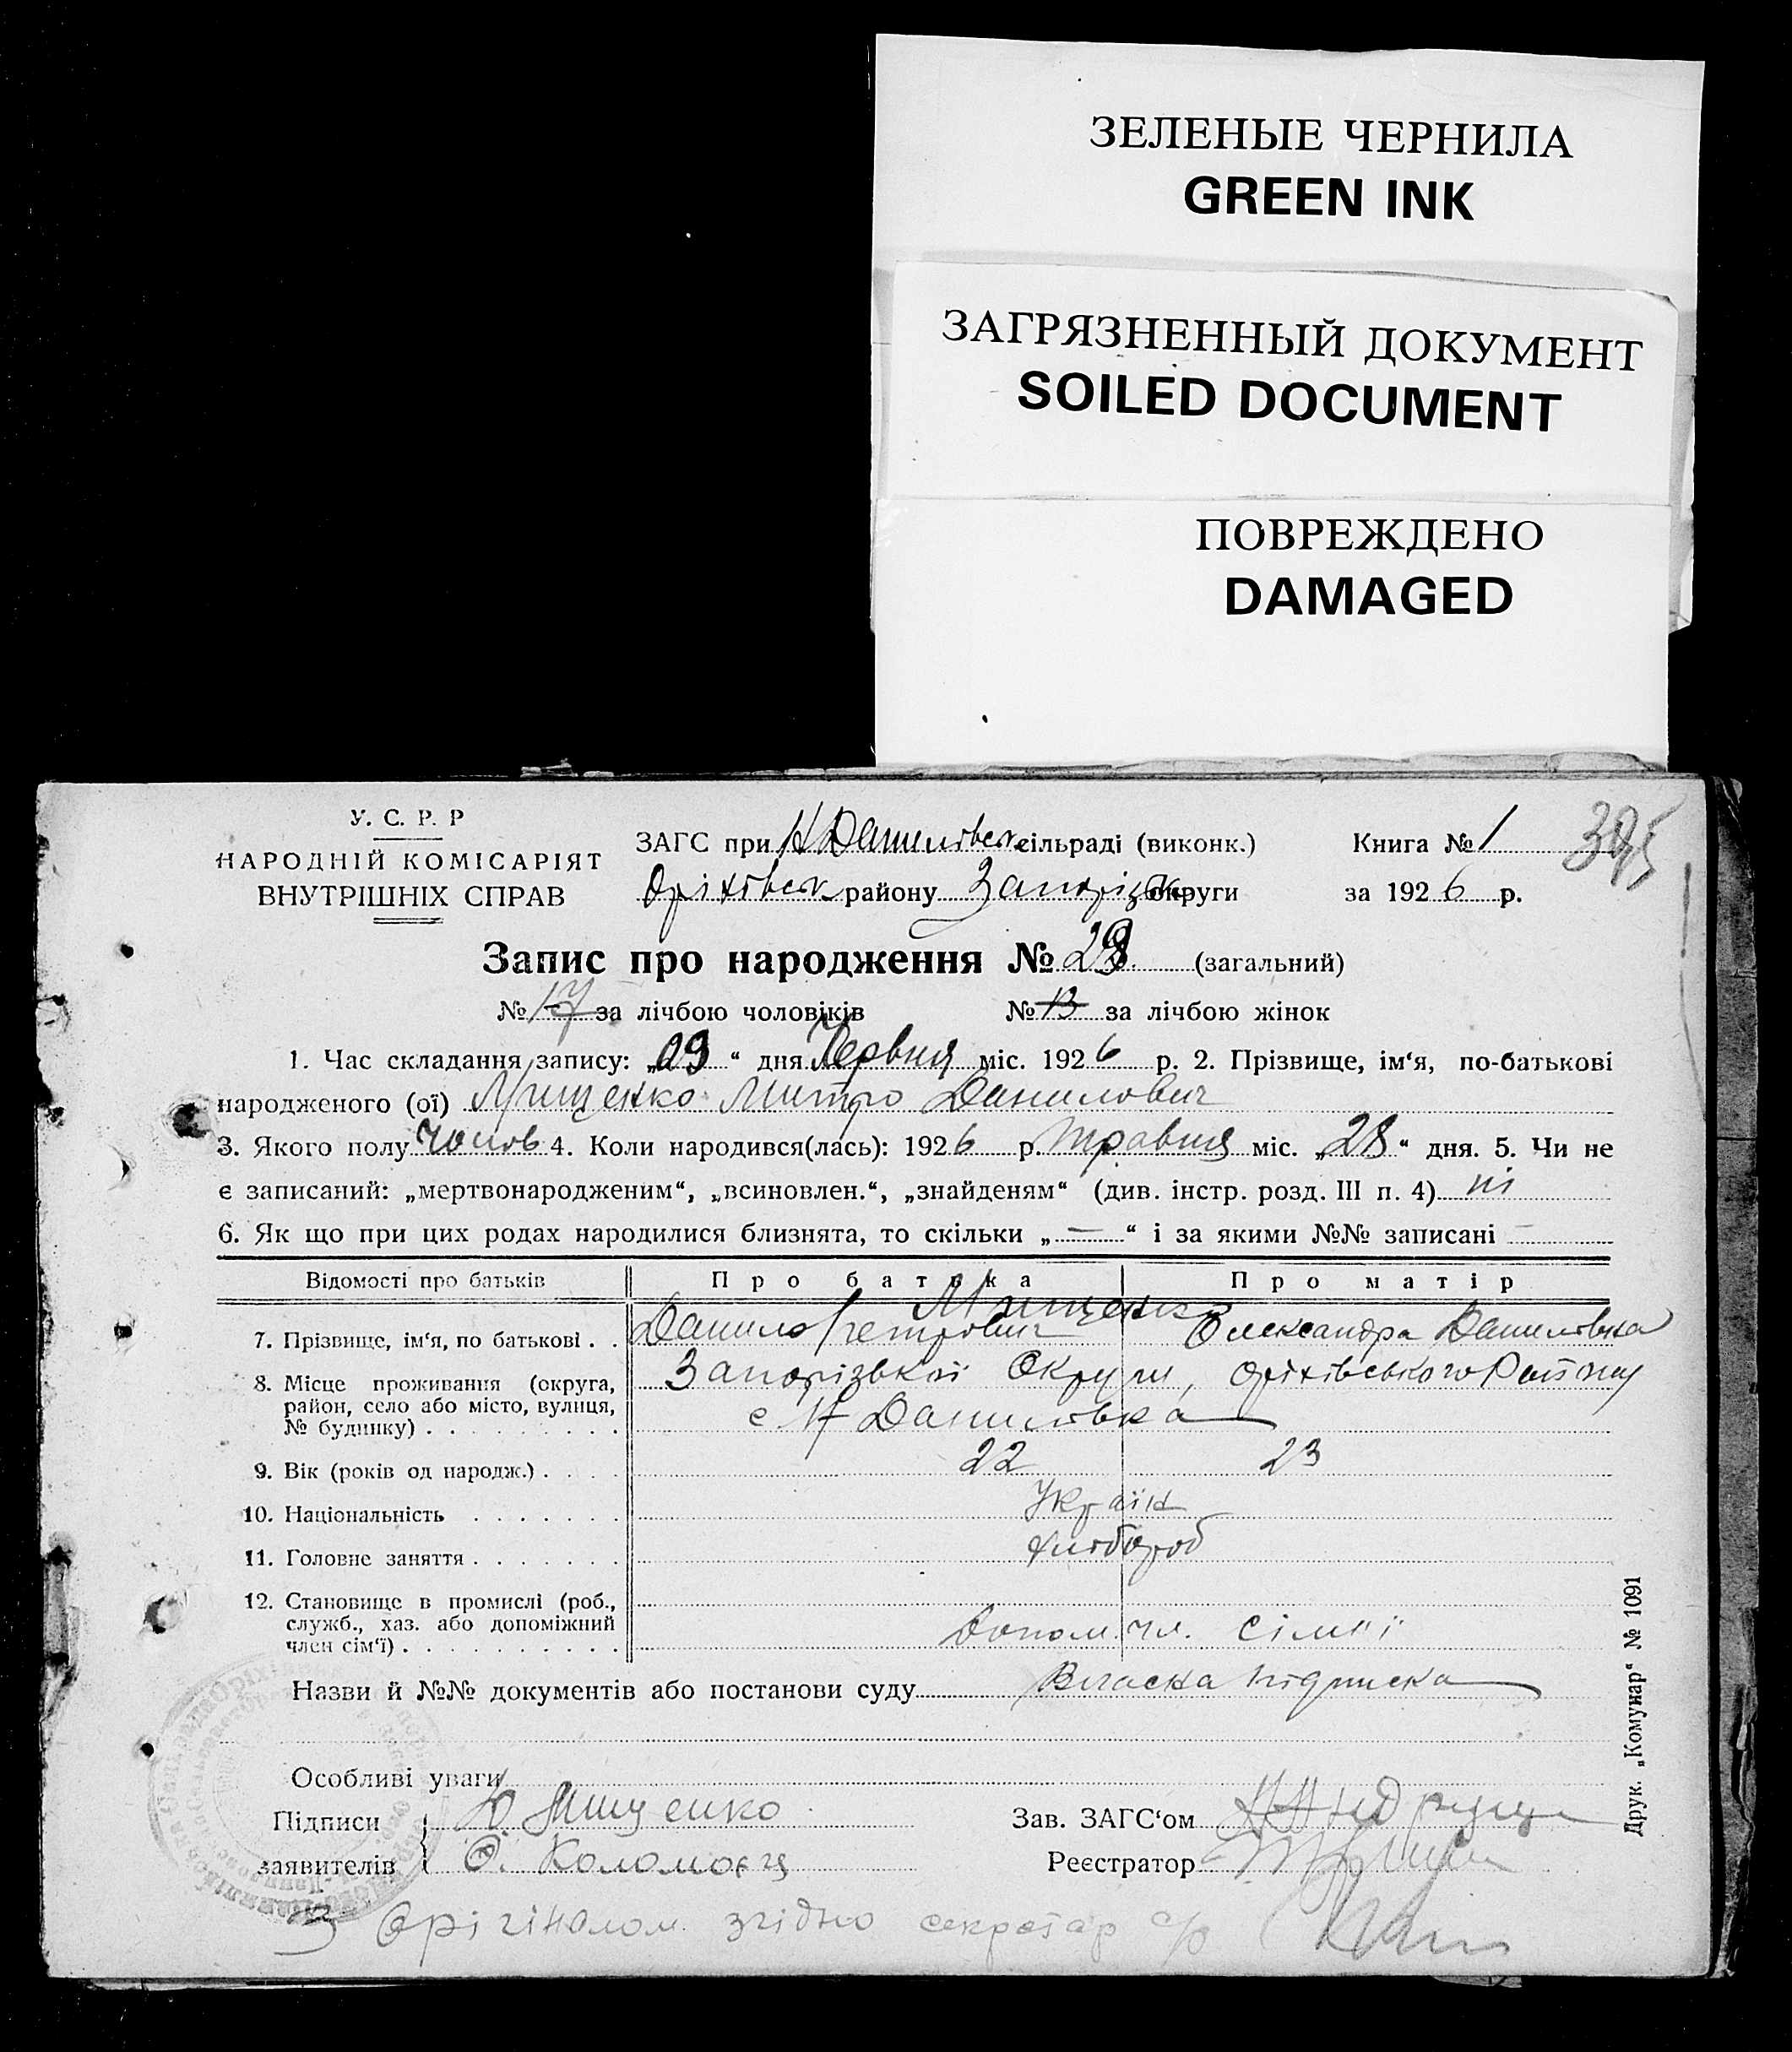 ЗЕЛЕНЫЕ ЧЕРНИЛА
GREEN INK
ЗАГРЯЗНЕННЫЙ ДОКУМЕНТ
SOILED DOCUMENT
ПОВРЕЖДЕНО
DAMAGED
У. С. Р. Р
НАРОДНІЙ КОМІСАРІЯТ
ВНУТРІШНІХ СПРАВ
ЗАГС при Н Данилівськ сільраді (виконк.)
Оріхівськ району Запорізьк округи
Книга № 1
за 1926 р.
395
Запис про народження № 28 (загальний)
№ 17 за лічбою чоловіків № 13 за лічбою жінок
1. Час складання запису: „ “ дня Червня міс. 1926 р. 2. Прізвище, ім‘я, по-батькові
народженого (ої) Мищенко Митро Данилович
3. Якого полу чолов 4. Коли народився(лась): 1926 р. Травня міс. „28“ дня. 5. Чи не
є записаний: „мертвонародженим“, „всиновлен.“, „знайденям“ (див. інстр. розд. III п. 4) ні
6. Як що при цих родах народилися близнята, то скільки „—“ і за якими №№ записані —
Відомості про батьків Про батька Про матір
Мищенко
7. Прізвище, ім‘я, по батькові . . Данило Петрович Олександра Данилівна
8. Місце проживання (округа, Запорізької Округи, Оріхівського Району
район, село або місто, вулиця,
№ будинку) . . . . . . . . . с Н Данилівка
9. Вік (років од народж.) . . . . 22 23
10. Національність . . . . . . . Україн
11. Головне заняття . . . . . . . хлібороб
12. Становище в промислі (роб.,
служб., хаз. або допоміжний
член сім‘ї) . . . . . . . . . . Допом. чл. сімї
Назви й №№ документів або постанови суду Власна підписка
Особливі уваги
Підписи Мищенко
заявителів Ф. Коломоєць
Зав. ЗАГС‘ом
Реєстратор
З Орігіналом згідно секретар с/р
Друк. „Комунар“ № 1091